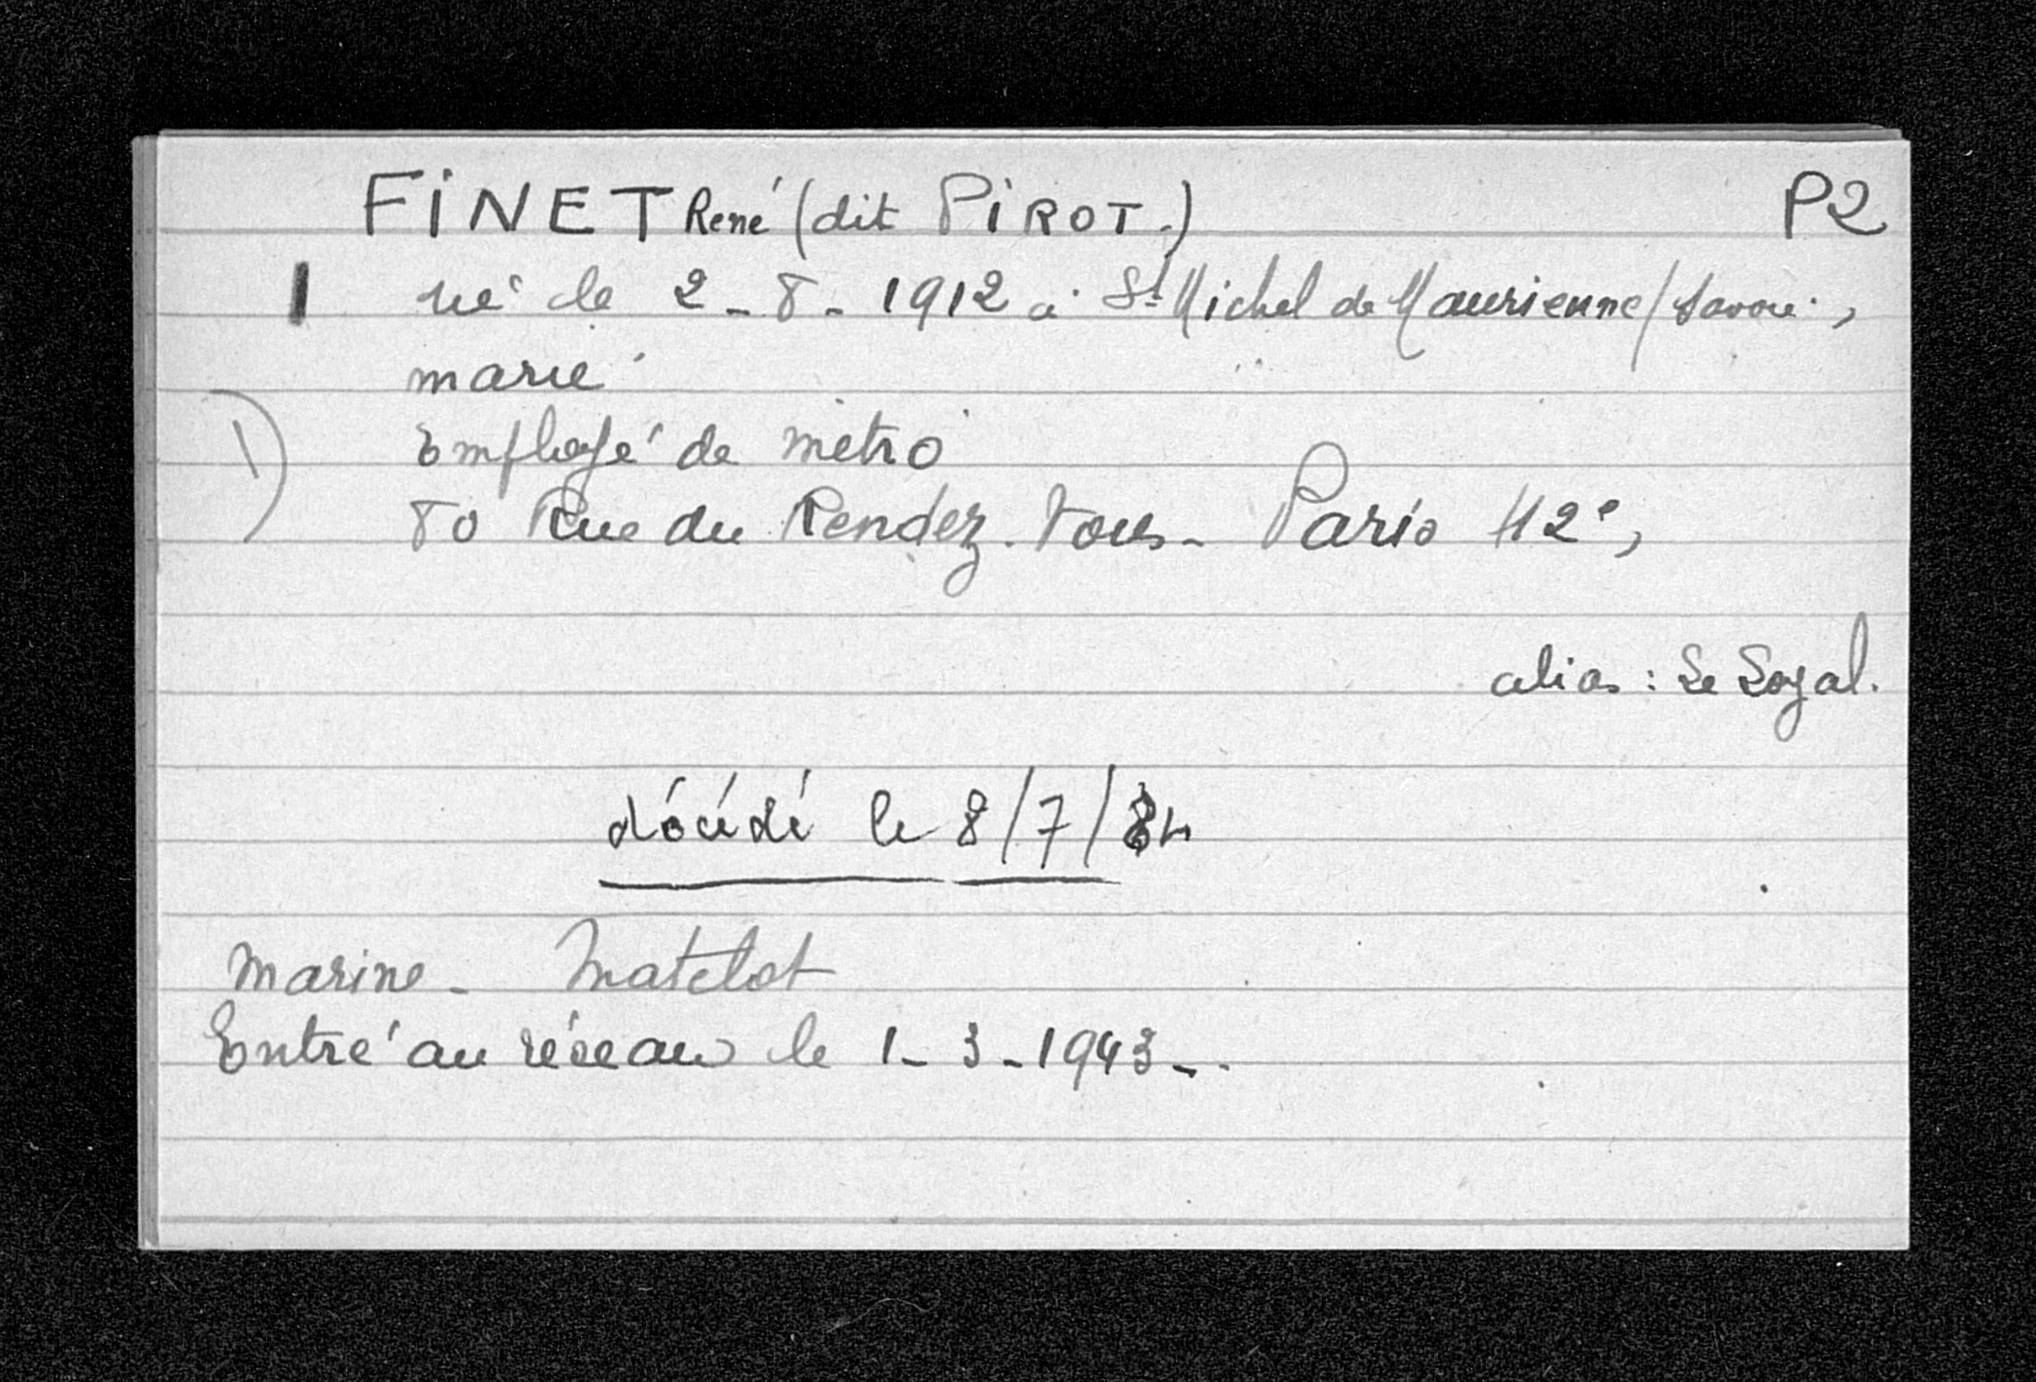 FINET René (dit PIROT.) P2
1 né le 2-8-1912 à St Michel de Maurienne/Savoie,
marié
1) Employé de métro
80 Rue du Rendez-Vous - Paris 12e,
alias : Le Loyal.
décédé le 8/7/84
Marine - Matelot
Entré au réseau le 1-3-1943-.